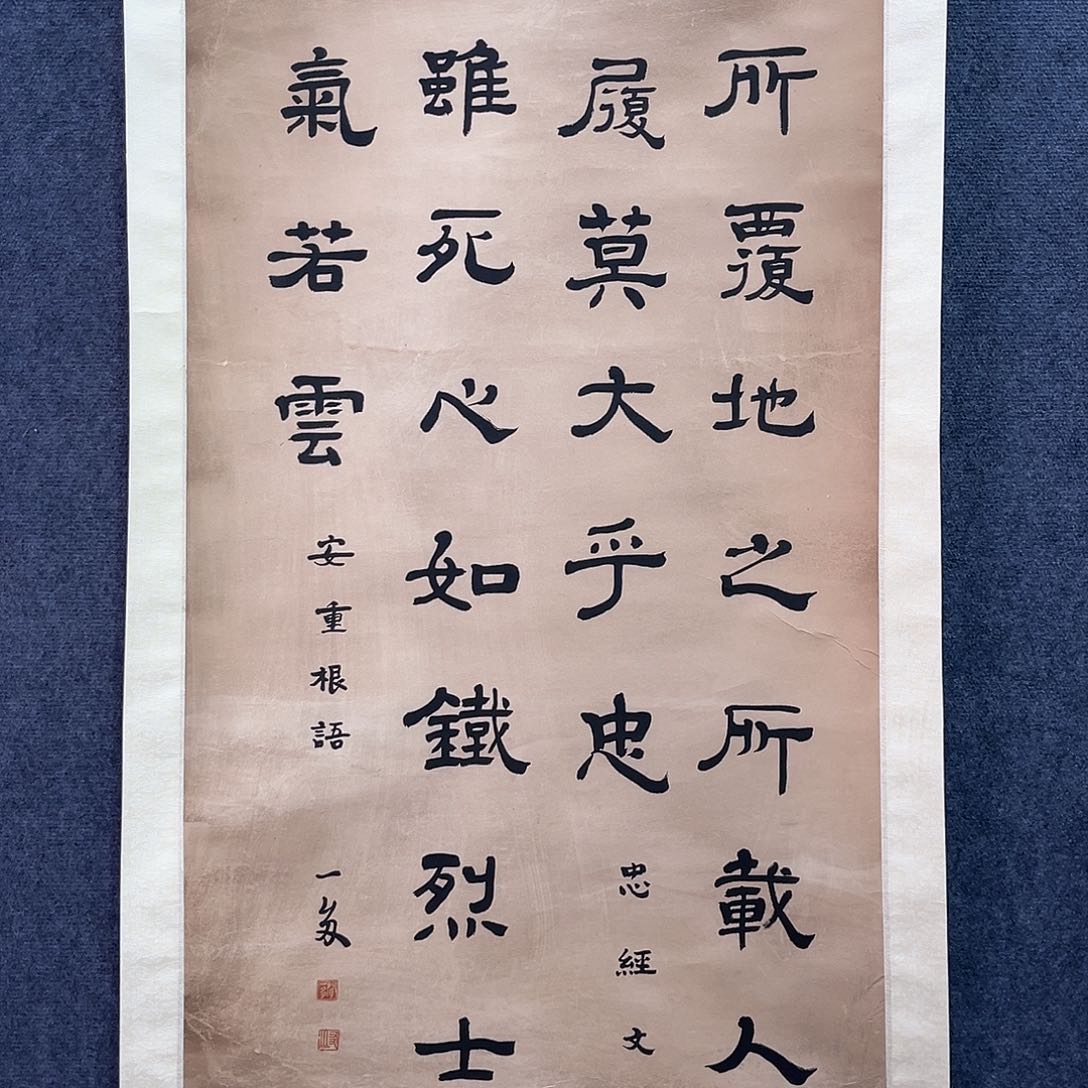 所覆地之所載人
履莫大乎忠
忠經文
雖死心如鐵烈士
氣若雲
安重根語
一